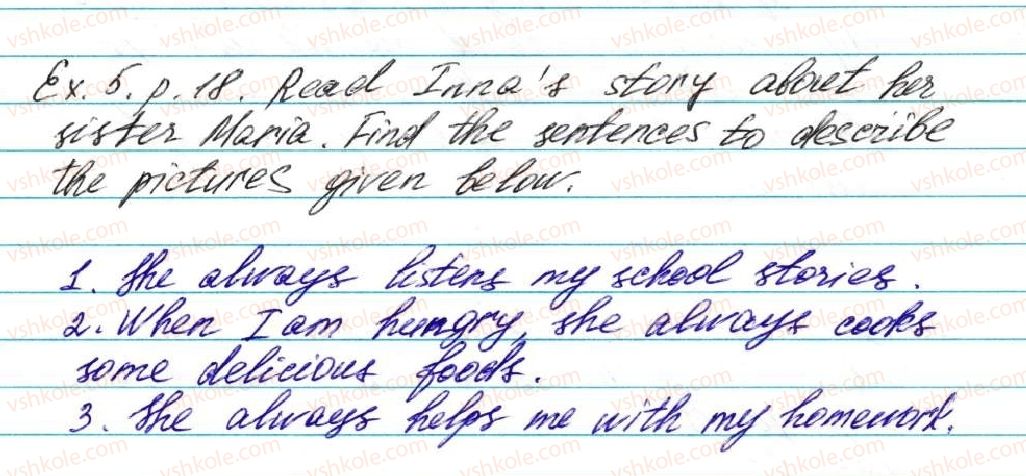 Ex. 5. p. 18. Read Inna's story about her
sister Maria. Find the sentences to describe
the pictures given below.
1. She always listens my school stories.
2. When I am hungry, she always cooks
some delicious foods.
3. She always helps me with my homework.